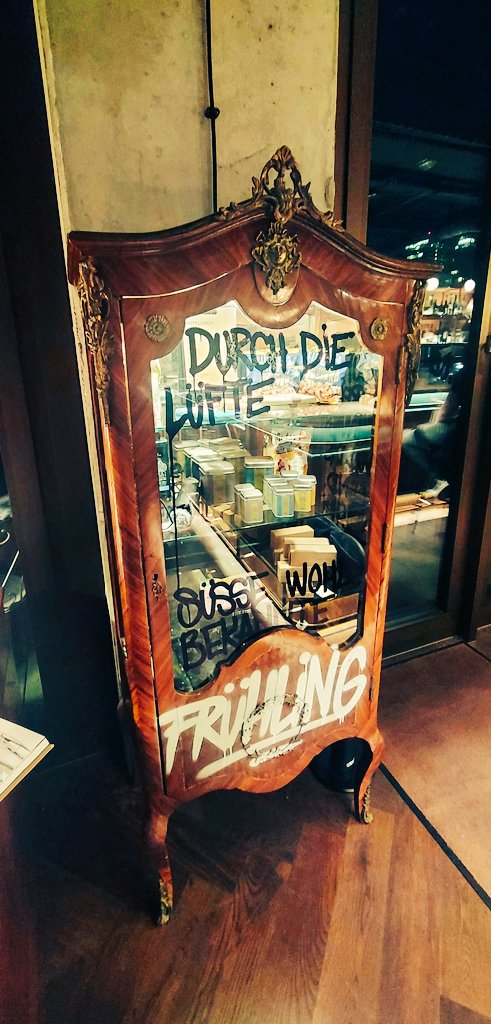 DURCH DIE
LÜFTE
SÜSSE WOHL
BEKANNTE
FRÜHLING